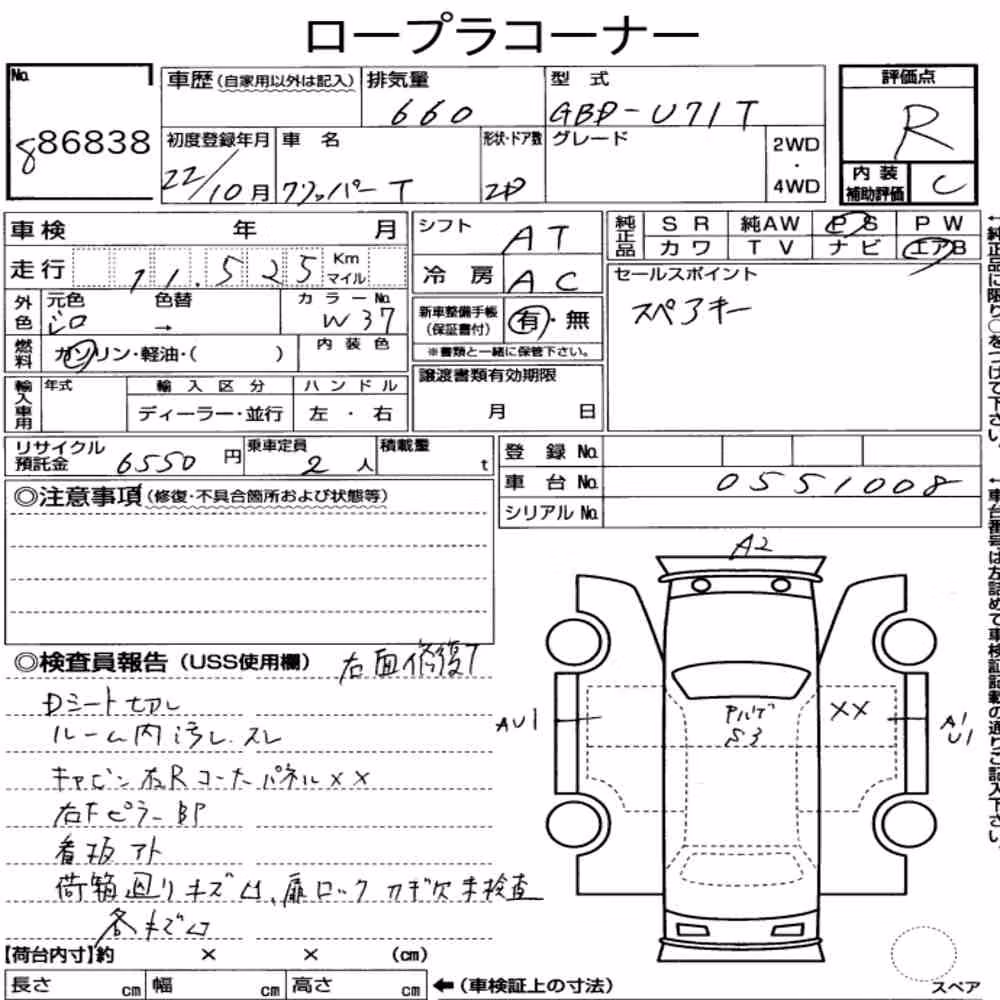 ロープラコーナー
No.
886838
車歴(自家用以外は記入)
排気量
660
型 式
GBD-U71T
評価点
R
初度登録年月
22/10月
車 名
クリッパーT
形状・ドア数
2D
グレード
2WD
・
4WD
内装補助評価
C
車検 年 月
シフト
AT
純正品
SR 純AW PS PW
カワ TV ナビ エアB
走行 11.525 Km マイル
冷房
AC
セールスポイント
スペアキー
外色
元色
シロ
色替
→
カラーNo.
W37
新車整備手帳
(保証書付)
有・無
※書類と一緒に保管下さい。
燃料
ガソリン・軽油・( )
内装色
輸入車用
年式
輸入区分
ハンドル
ディーラー・並行
左・右
譲渡書類有効期限
月 日
リサイクル預託金
6550円
乗車定員
2人
積載量
t
登録No.
車台No. 0551008
シリアルNo.
◎注意事項(修復・不具合箇所および状態等)
◎検査員報告(USS使用欄)
右面修復了
Dシート切レ
ルーム内汚レ.スレ
キャビン右Rコーナーパネルxx
右Fピラー
看板アト
荷箱廻りキズ凹、扉ロックカギ欠未検査
各キズ凹
A2
AU1
S3
XX
A1
U1
【荷台内寸】約 × × (cm)
長さ cm 幅 cm 高さ cm
←(車検証上の寸法)
スペア
←純正品に限り○をつけて下さい。
←車台番号は左詰めで車検証記載の通りご記入下さい。